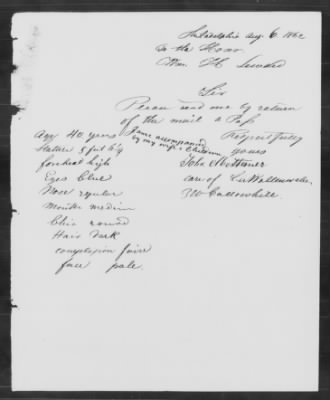 Philadelphia Aug. 6. 1862
To the Honr.
Wm. H Seward
Sir
Please send me by return
of the mail a Pass
I am accompanied
by my wife & Children
Respectfully
yours
John
care of
Callowhill
Age 40 years
Stature 5 feet 6 1/4
forehead high
Eyes Blue
Nose regular
Mouth medium
Chin round
Hair Dark
complexion faire
face pale.